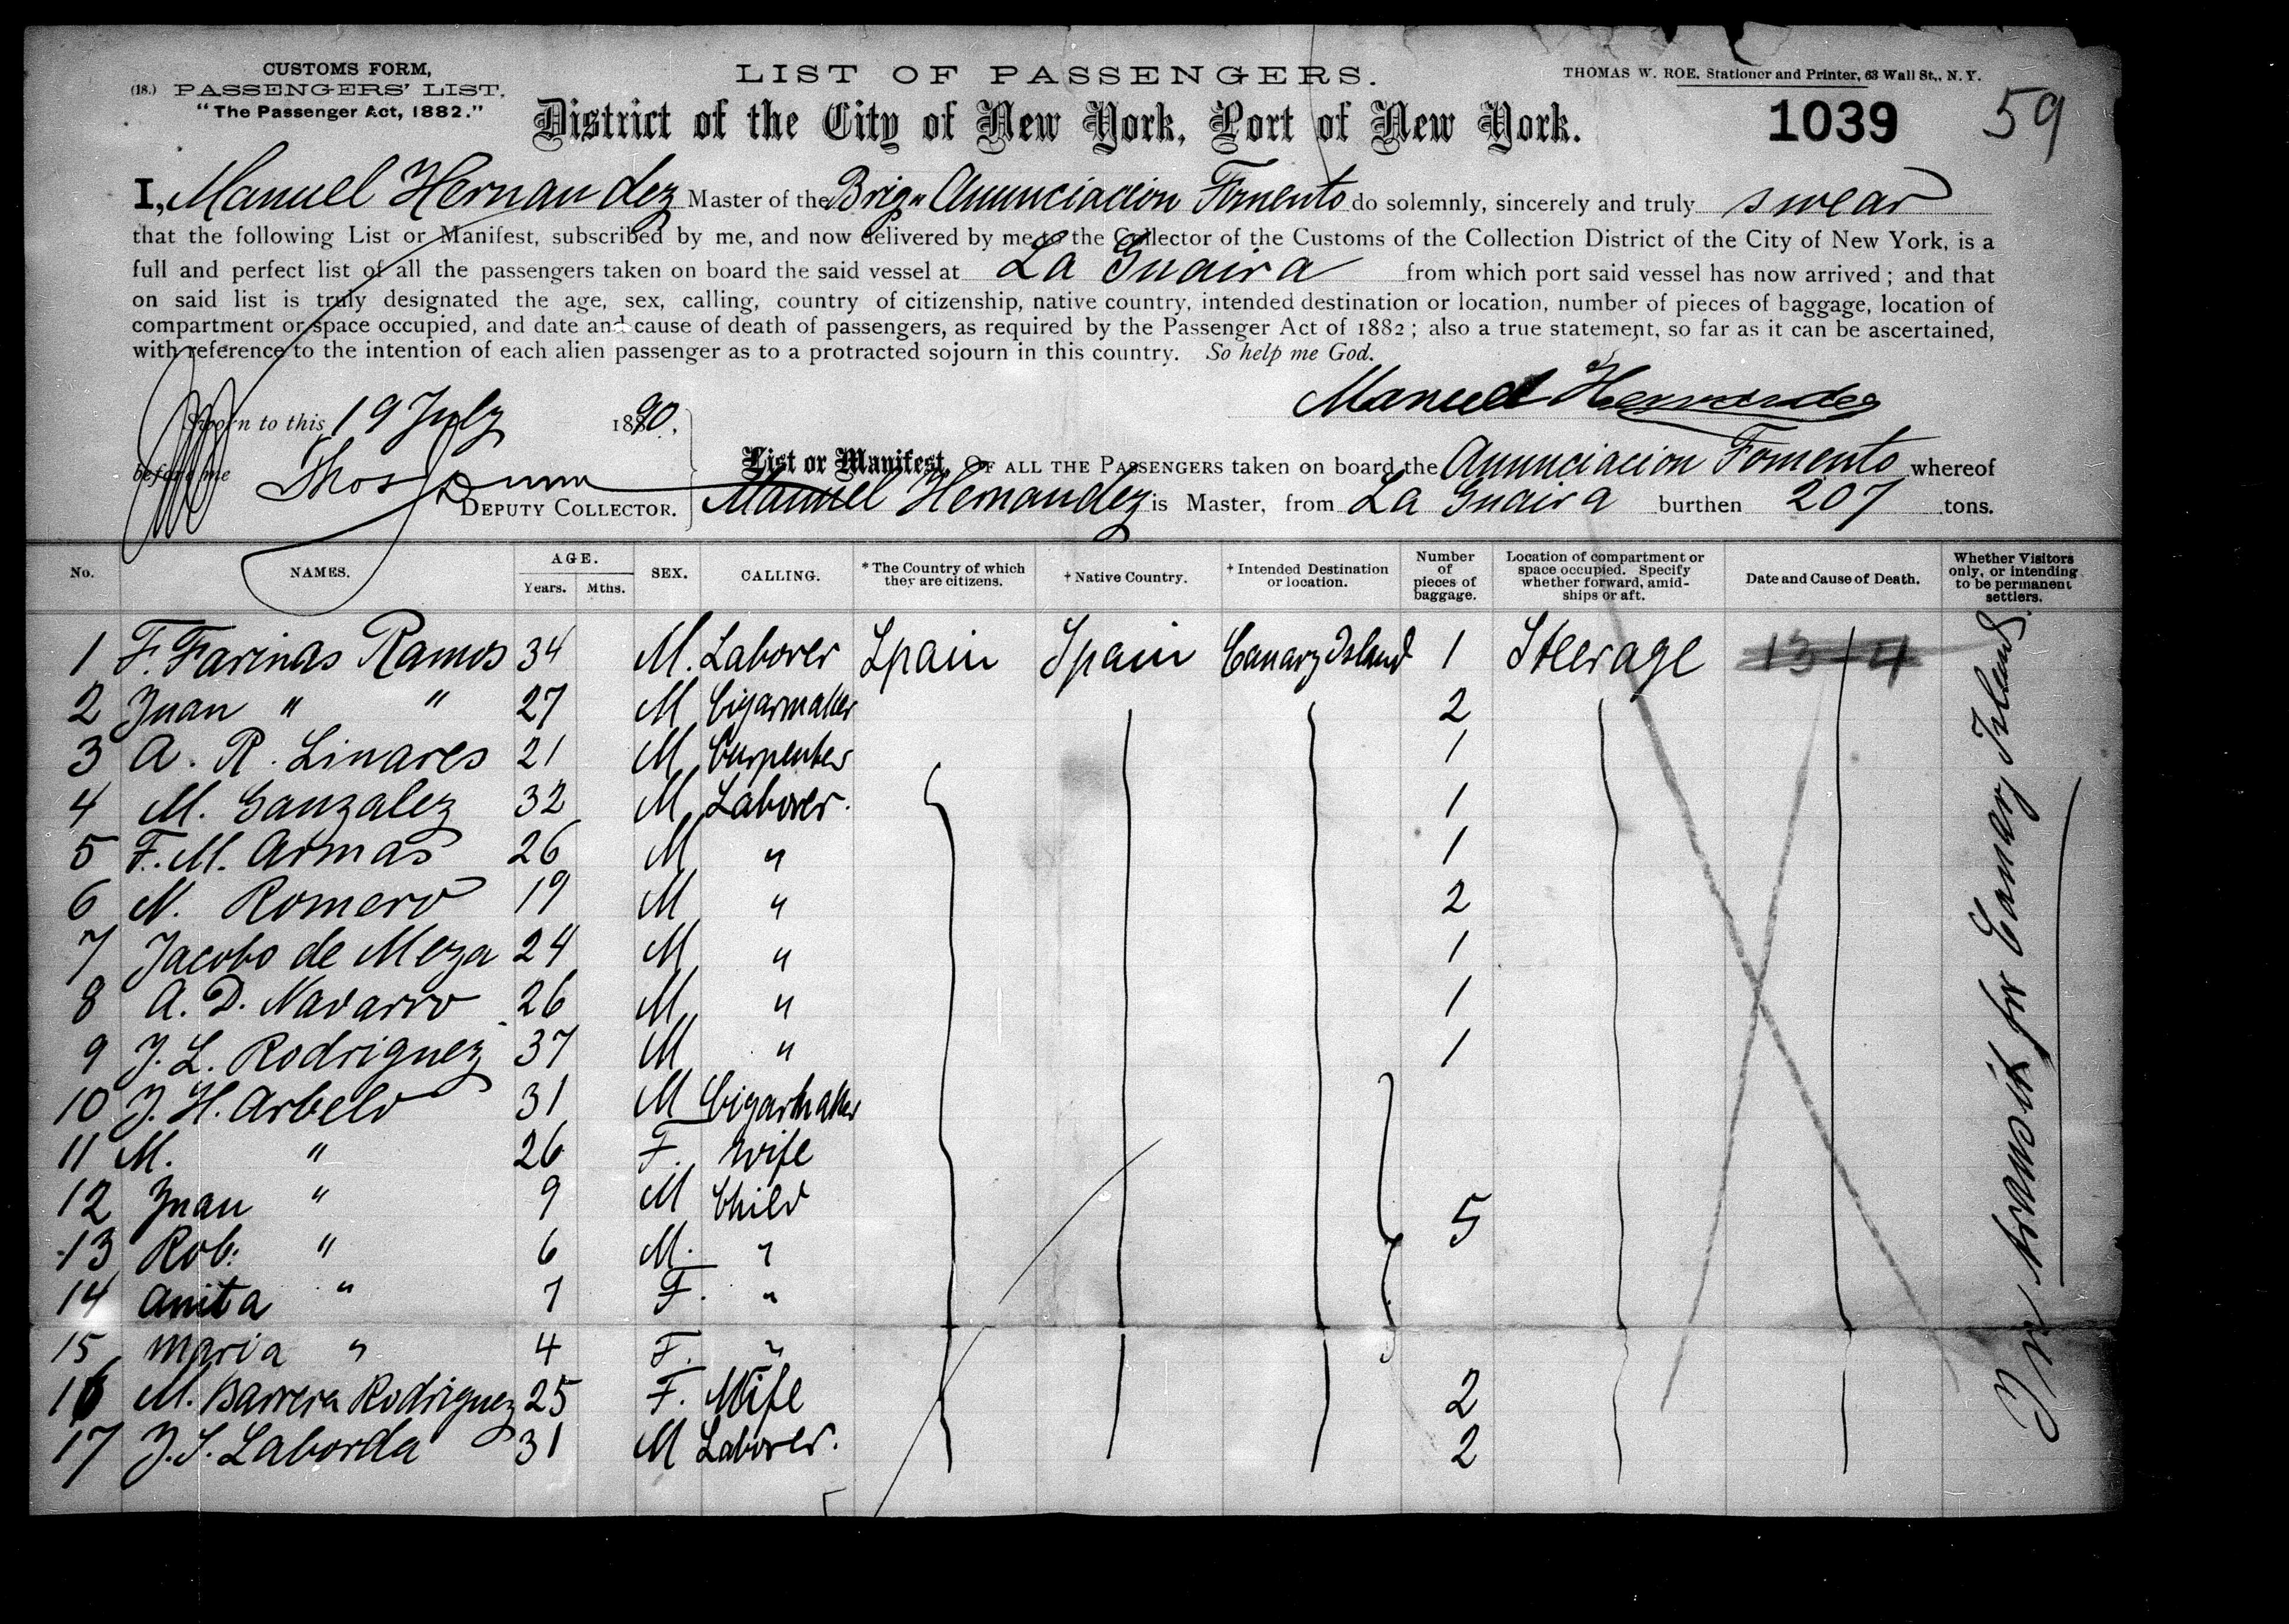 CUSTOMS FORM,
(18.) PASSENGERS' LIST.
"The Passenger Act, 1882."
LIST OF PASSENGERS.
THOMAS W. ROE, Stationer and Printer, 63 Wall St., N. Y.
District of the City of New York, Port of New York.
1039
59
I, Manuel Hernandez Master of the Brig" Anunciacion Fomento do solemnly, sincerely and truly swear
that the following List or Manifest, subscribed by me, and now delivered by me to the Collector of the Customs of the Collection District of the City of New York, is a
full and perfect list of all the passengers taken on board the said vessel at La Guaira from which port said vessel has now arrived; and that
on said list is truly designated the age, sex, calling, country of citizenship, native country, intended destination or location, number of pieces of baggage, location of
compartment or space occupied, and date and cause of death of passengers, as required by the Passenger Act of 1882; also a true statement, so far as it can be ascertained,
with reference to the intention of each alien passenger as to a protracted sojourn in this country. So help me God.
Manuel Hernandez
Sworn to this 19 July 1890,
before me Thos
DEPUTY COLLECTOR.
List or Manifest, OF ALL THE PASSENGERS taken on board the Anunciacion Fomento whereof
Manuel Hernandez is Master, from La Guaira burthen 207 tons.
No. NAMES. AGE. Years. Mths. SEX. CALLING. *The Country of which they are citizens. †Native Country. †Intended Destination or location. Number of pieces of baggage. Location of compartment or space occupied. Specify whether forward, amid-ships or aft. Date and Cause of Death. Whether Visitors only, or intending to be permanent settlers.
1 F. Farinas Ramos 34 M. Laborer Spain Spain Canary Island 1 Steerage 13 4
2 Juan " " 27 M Cigarmaker 2
3 A. R. Linares 21 M Carpenter 1
4 M. Ganzalez 32 M Laborer. 1
5 F. M. Armas 26 M " 1
6 N. Romero 19 M " 2
7 Jacobo de Meza 24 M " 1
8 A. D. Navarro 26 M " 1
9 J. L. Rodriguez 37 M " 1
10 J. H. Arbelo 31 M Cigarmaker
11 M. " 26 F. Wife
12 Juan " 9 M Child 5
13 Rob: " 6 M. "
14 Anita " 7 F. "
15 Maria " 4 F. "
16 M. Barrera Rodriguez 25 F. Wife 2
17 J. S. Laborda 31 M Laborer. 2
In transit for Canary Islands.